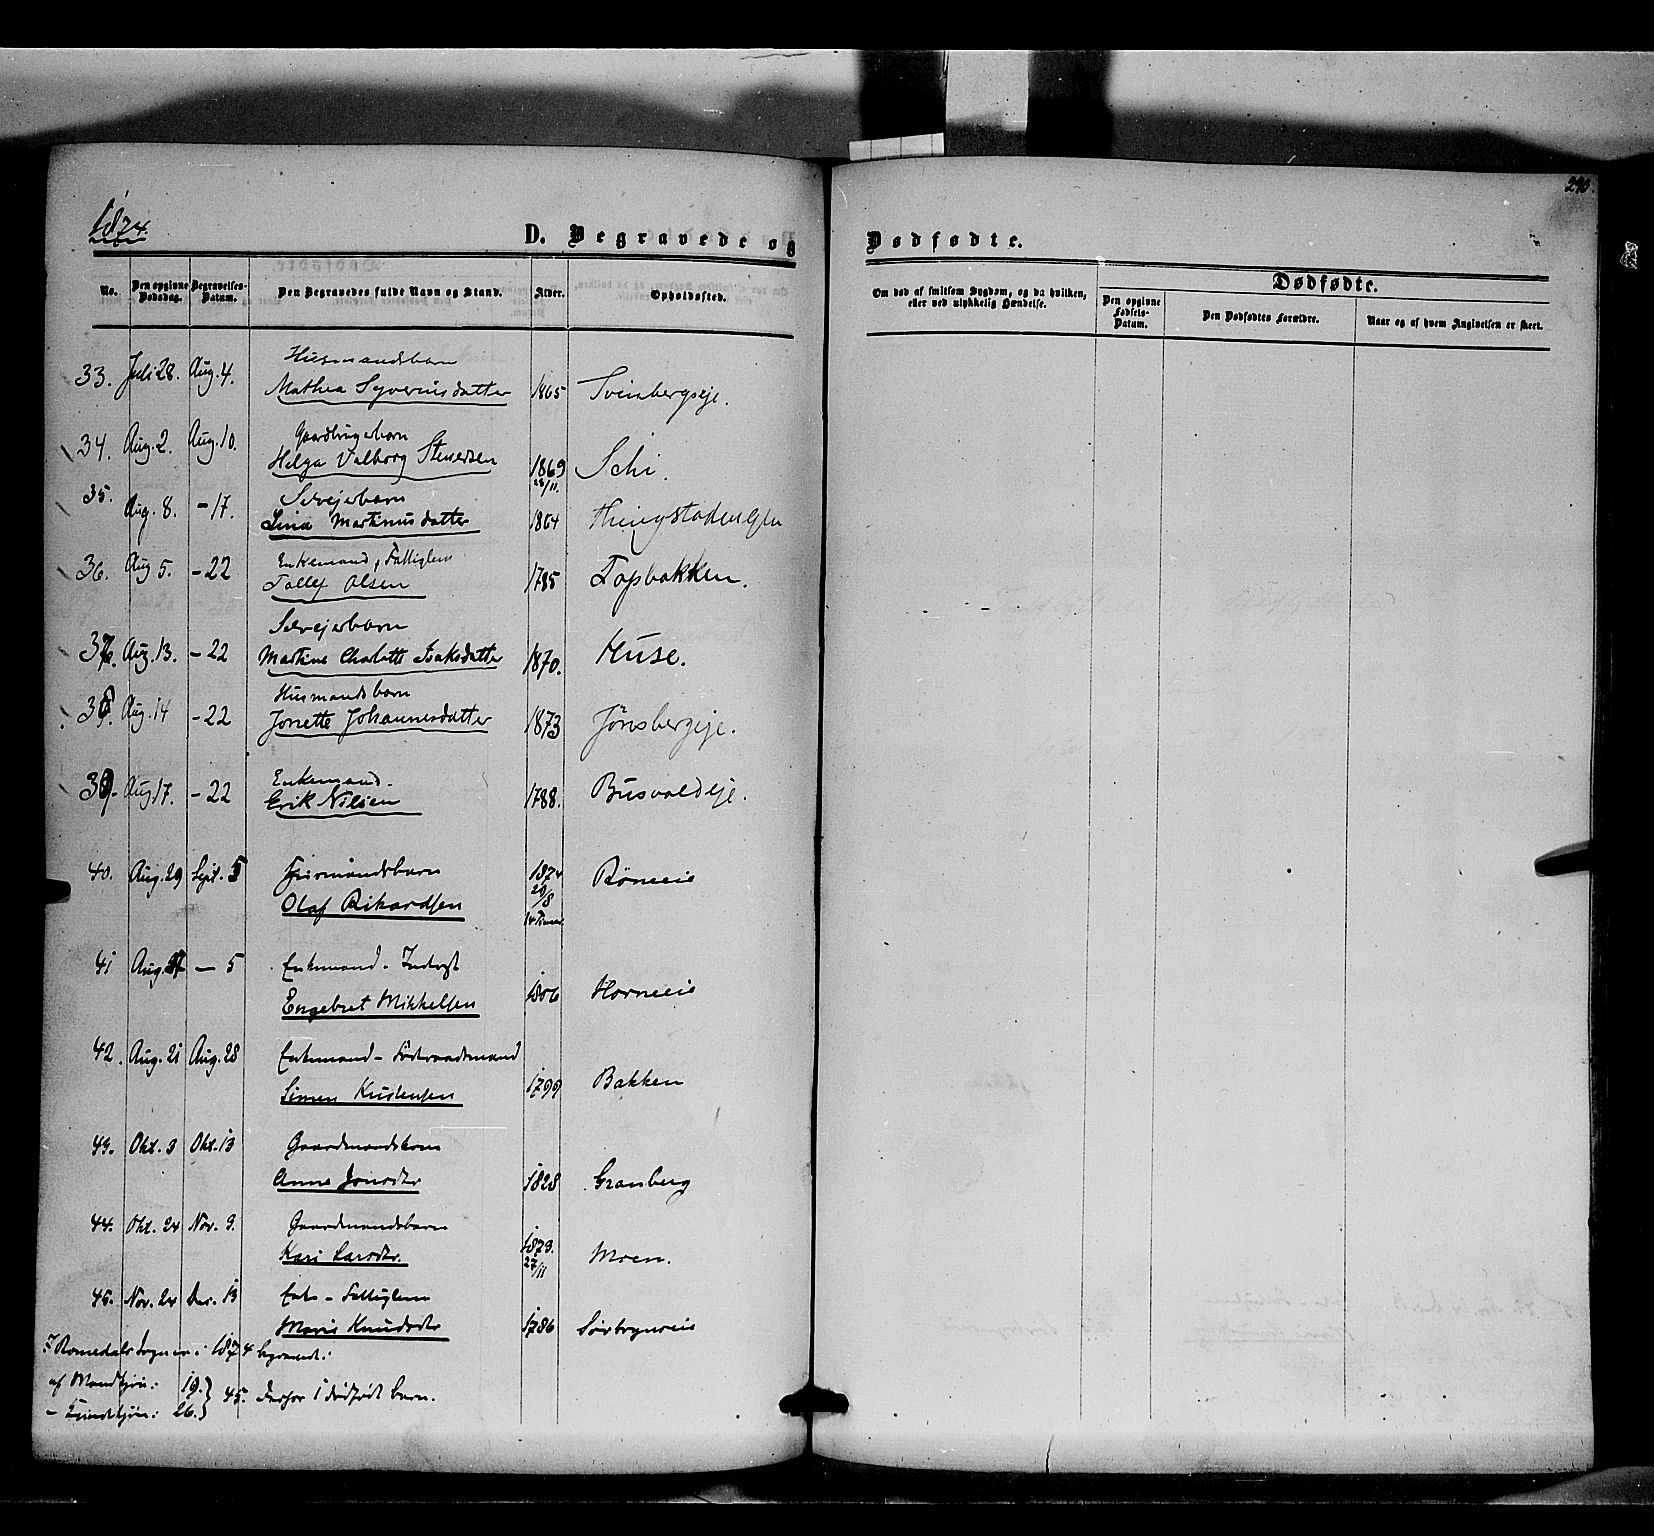 1874.
D. Begravede og
No.
Den opgivne Dødsdag.
Begravelses-Datum.
Den Begravedes fulde Navn og Stand.
Alder.
Opholdssted.
33. Juli 28. Aug. 4. Husmandsbarn
Mathea Syverinsdatter 1865 Svinbergseje.
34. Aug. 2. Aug. 10. Gaardbrugerbarn
Helga Valborg Stenersen 1869 28/11. Schi.
35. Aug. 8. - 17. Selvejerbarn
Lina Martinusdatter 1864
36. Aug 5. - 22 Enkemand, Fattiglem
Tollef Olsen 1785 Topbakken.
37. Aug. 13. - 22 Selvejerbarn
Martine Charlotte Isaksdatter 1870. Huse.
38. Aug. 14 - 22 Husmandsbarn
Jonette Johannesdatter 1873 Jönsbergeje.
39. Aug 17. - 22 Enkemand.
Erik Nilsen 1788. Busvoldeje.
40. Aug. 29 Sept. 5
Olaf Rikardsen 1874 29/8 14 Timer Röneeie
41 Aug. 27 — 5 Enkemand - Inderst
Engebret Mikkelsen 1806 Horneeie
42. Aug. 21 Aug. 28 Enkemand - Föderaadsmand
Simen Kristensen 1799 Bakken
43. Okt. 3 Okt. 13 Gaardmandskone
Anne Jonsdtr 1828 Granberg
44. Okt. 24 Nov. 9. Gaardmandsbarn
Kari Larsdtr. 1873. 27/11 Moen.
45. Nov. 24 Dec. 13 Enke - Fattiglem
Marie Knudsdtr 1786
I Romedals Sogn er i 1874 begravet:
af Mandkjön: 19.
- Kvindekjön: 26. } 45. derfor 1 dödfödt barn.
290.
Dødfødte.
Om død af smitsom Sygdom, og da hvilken, eller ved ulykkelig Hændelse.
Dødfødte.
Den opgivne Fødsels-Datum.
Den Dødfødtes Forældre.
Naar og af hvem Angivelsen er skeet.